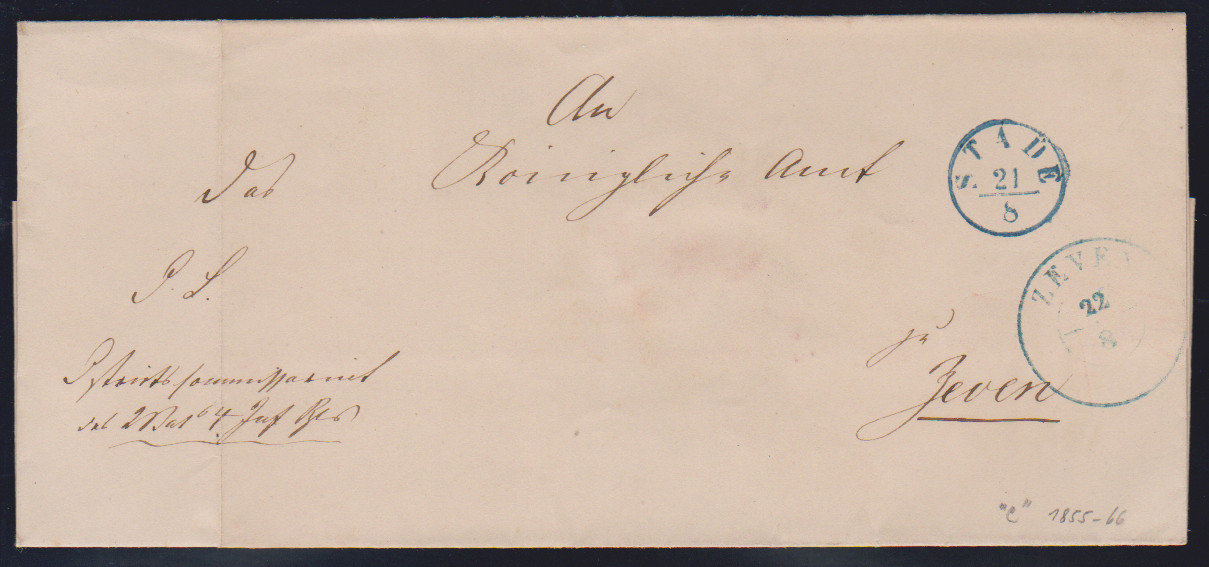 An
das Königliche Amt
zu
Zeven
J. S.
Districtscommissariat
des 2 Bat 4 Inf Rgts
STADE
21
8
ZEVEN
22
8
"e" 1855-66